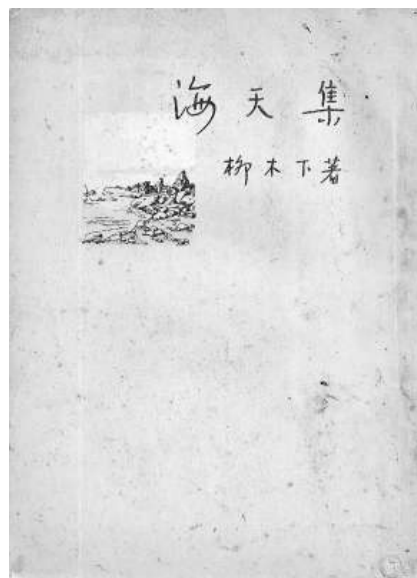 海天集
柳木下著